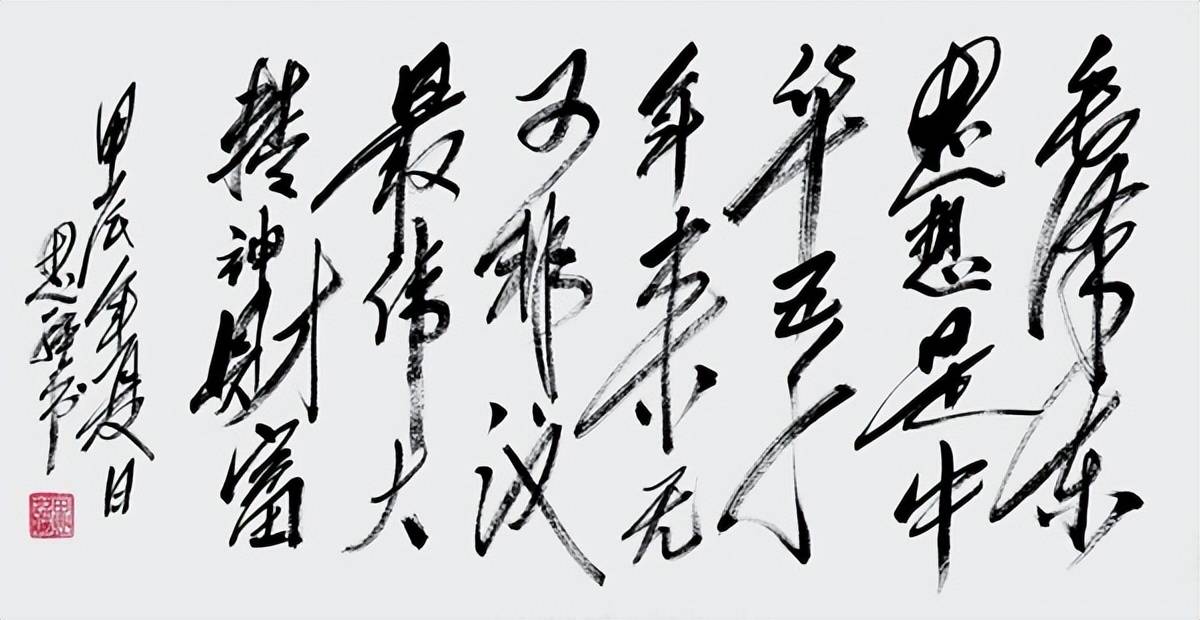 毛泽东
思想是中
华五千
年来无
可非议
最伟大
精神财富
甲辰年夏日
思
书